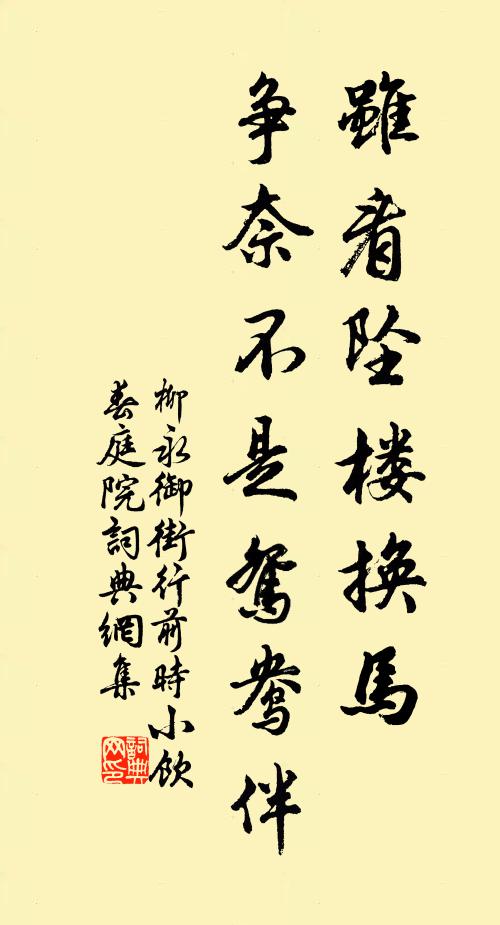 雖看坠楼换馬
争奈不是鴛鴦伴
柳永御街行前時小飲
春庭院詞典網集
詞典网印